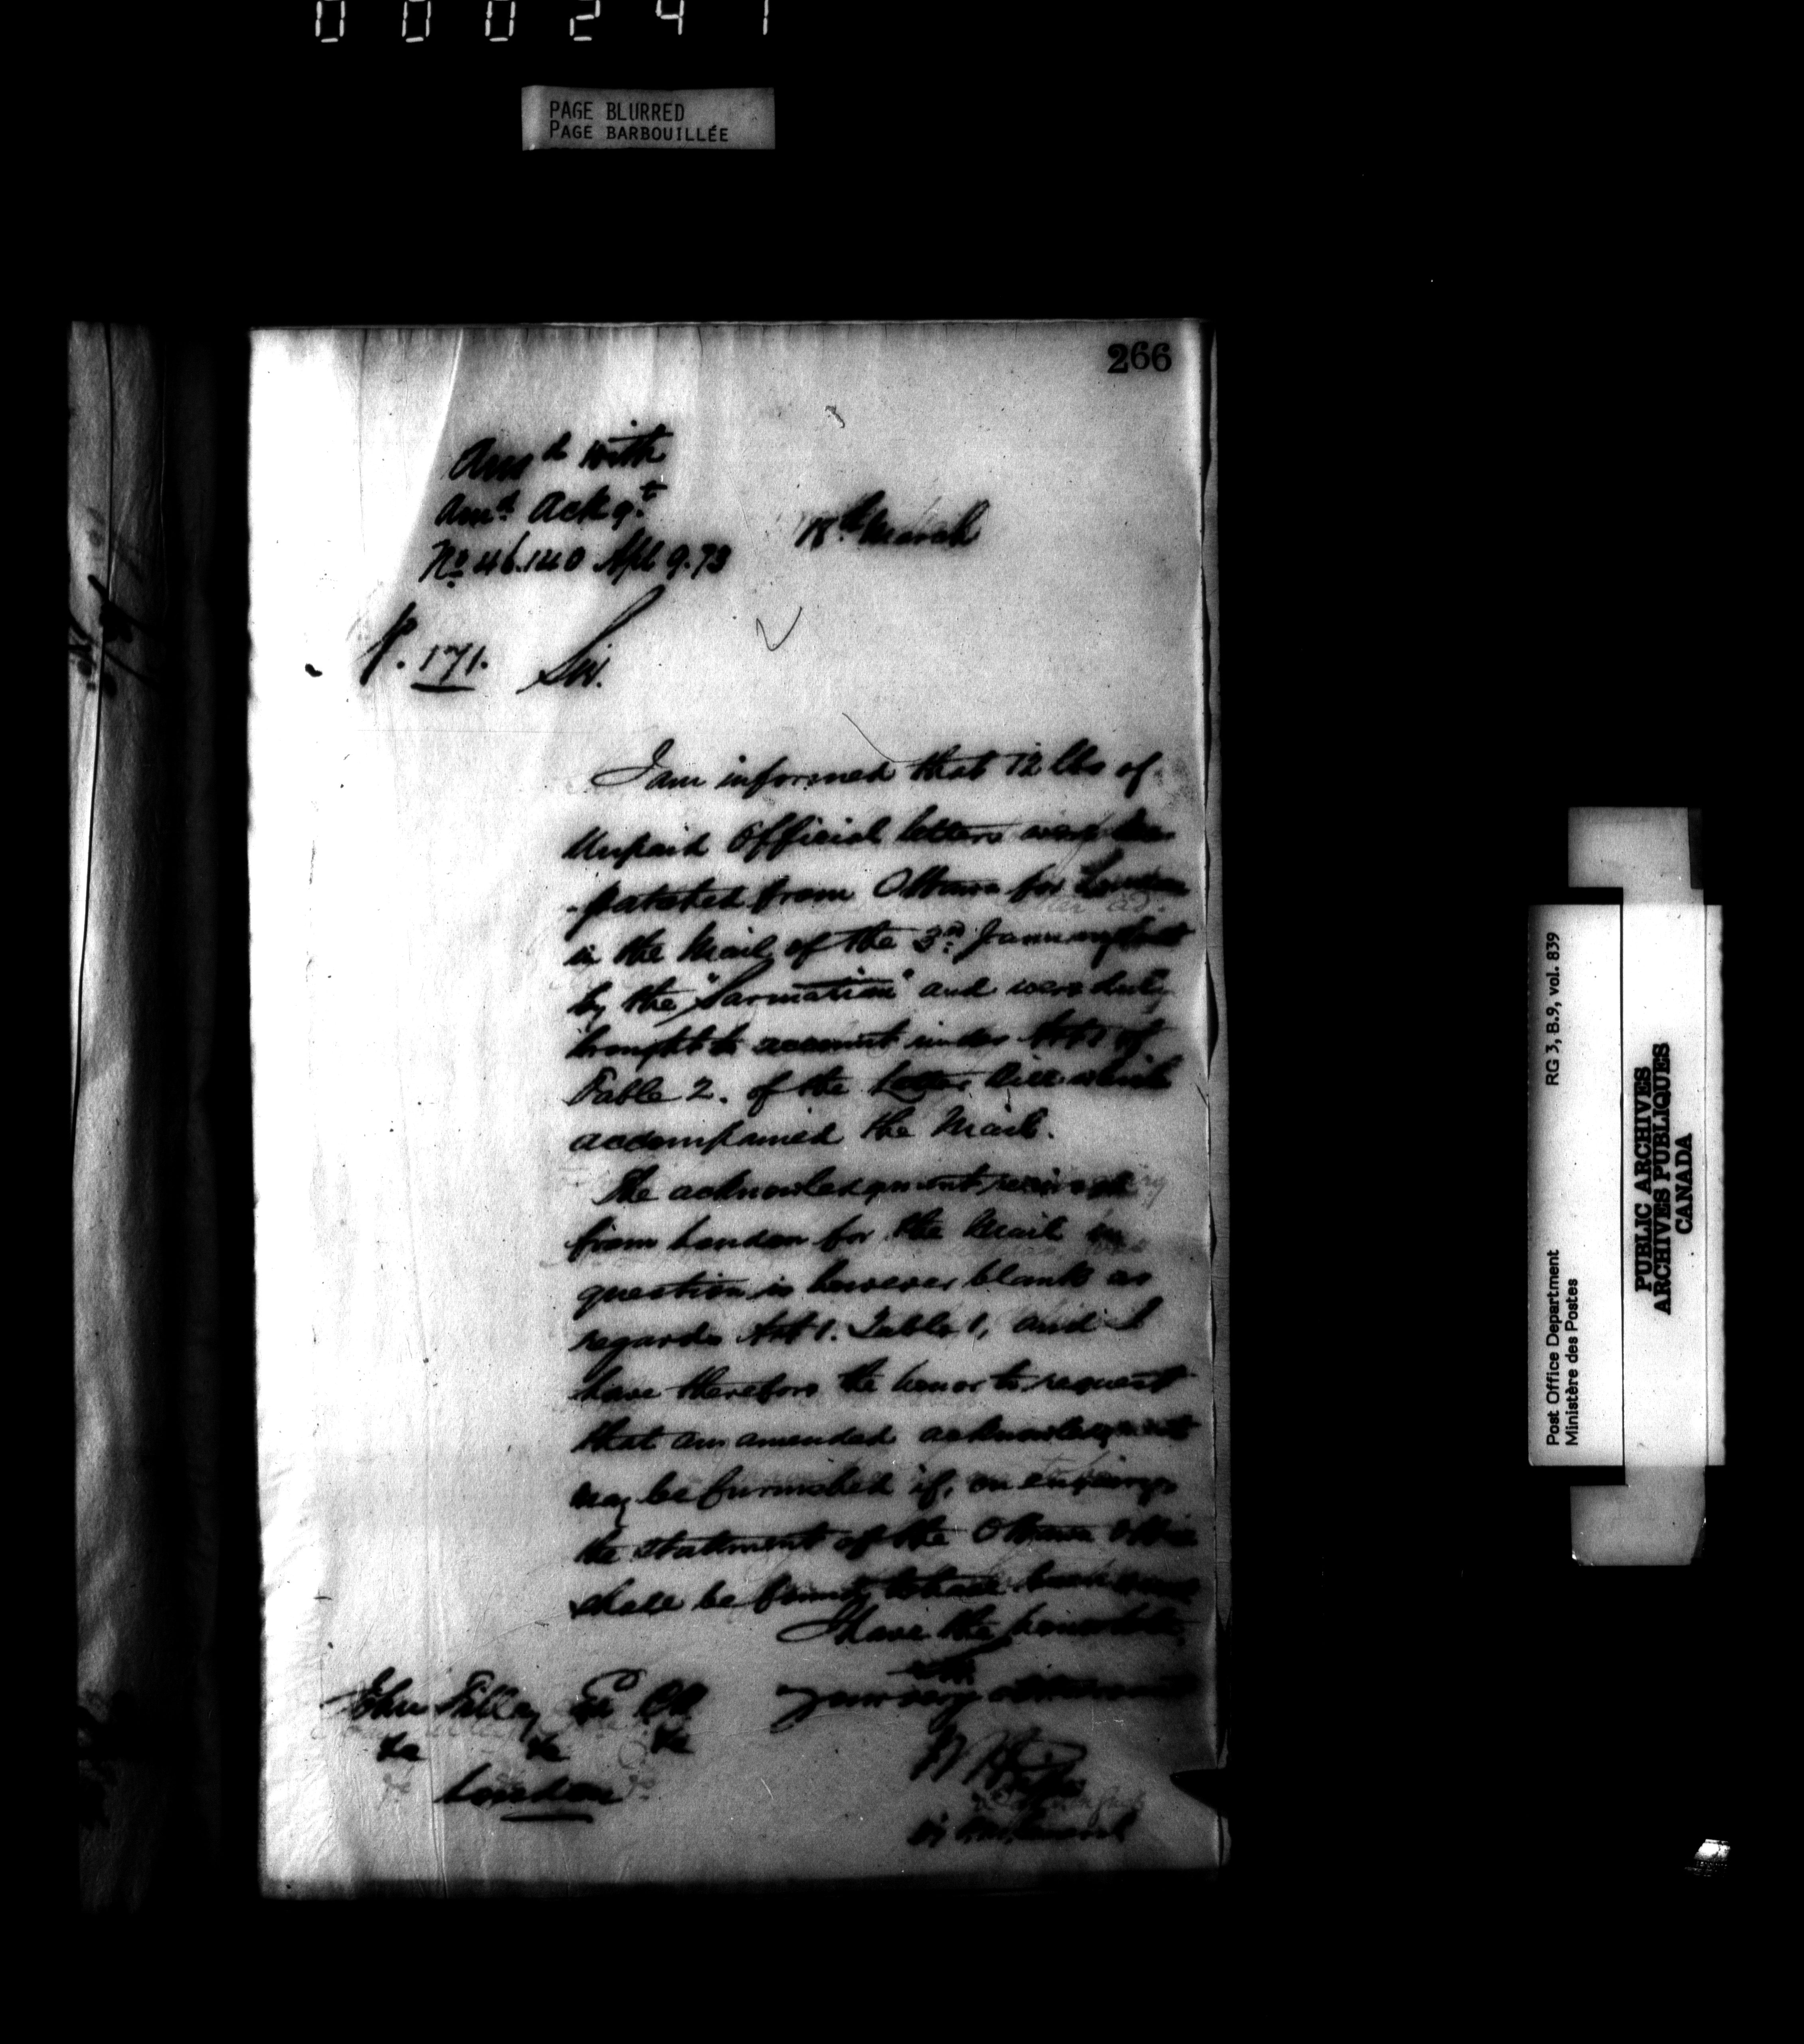 000241
PAGE BLURRED
PAGE BARBOUILLÉE
266
Ansd with
Amd Ackgt
No 46.140 Apl 9. 73
18th March
P. 171.
Sir.
I am informed that 12 lbs of
Unpaid Official letters were des
-patched from Ottawa for London
in the Mail of the 3rd January last
by the "Sarmatian" and were duly
brought to account under Art 1 of
Table 2. of the Letter Bill which
accompanied the Mail.
The acknowledgment received
from London for the Mail in
question is however blank as
regards Art 1. Table 1, and I
have therefore the honor to request
that an amended acknowledgment
may be furnished if, on enquiry,
the statement of the Ottawa Office
shall be found to have been
I have the honor to be
Sir
Your very
John Tilley Esq CB
&c &c &c
London
RG 3, B.9, vol. 839
Post Office Department
Ministère des Postes
PUBLIC ARCHIVES
ARCHIVES PUBLIQUES
CANADA